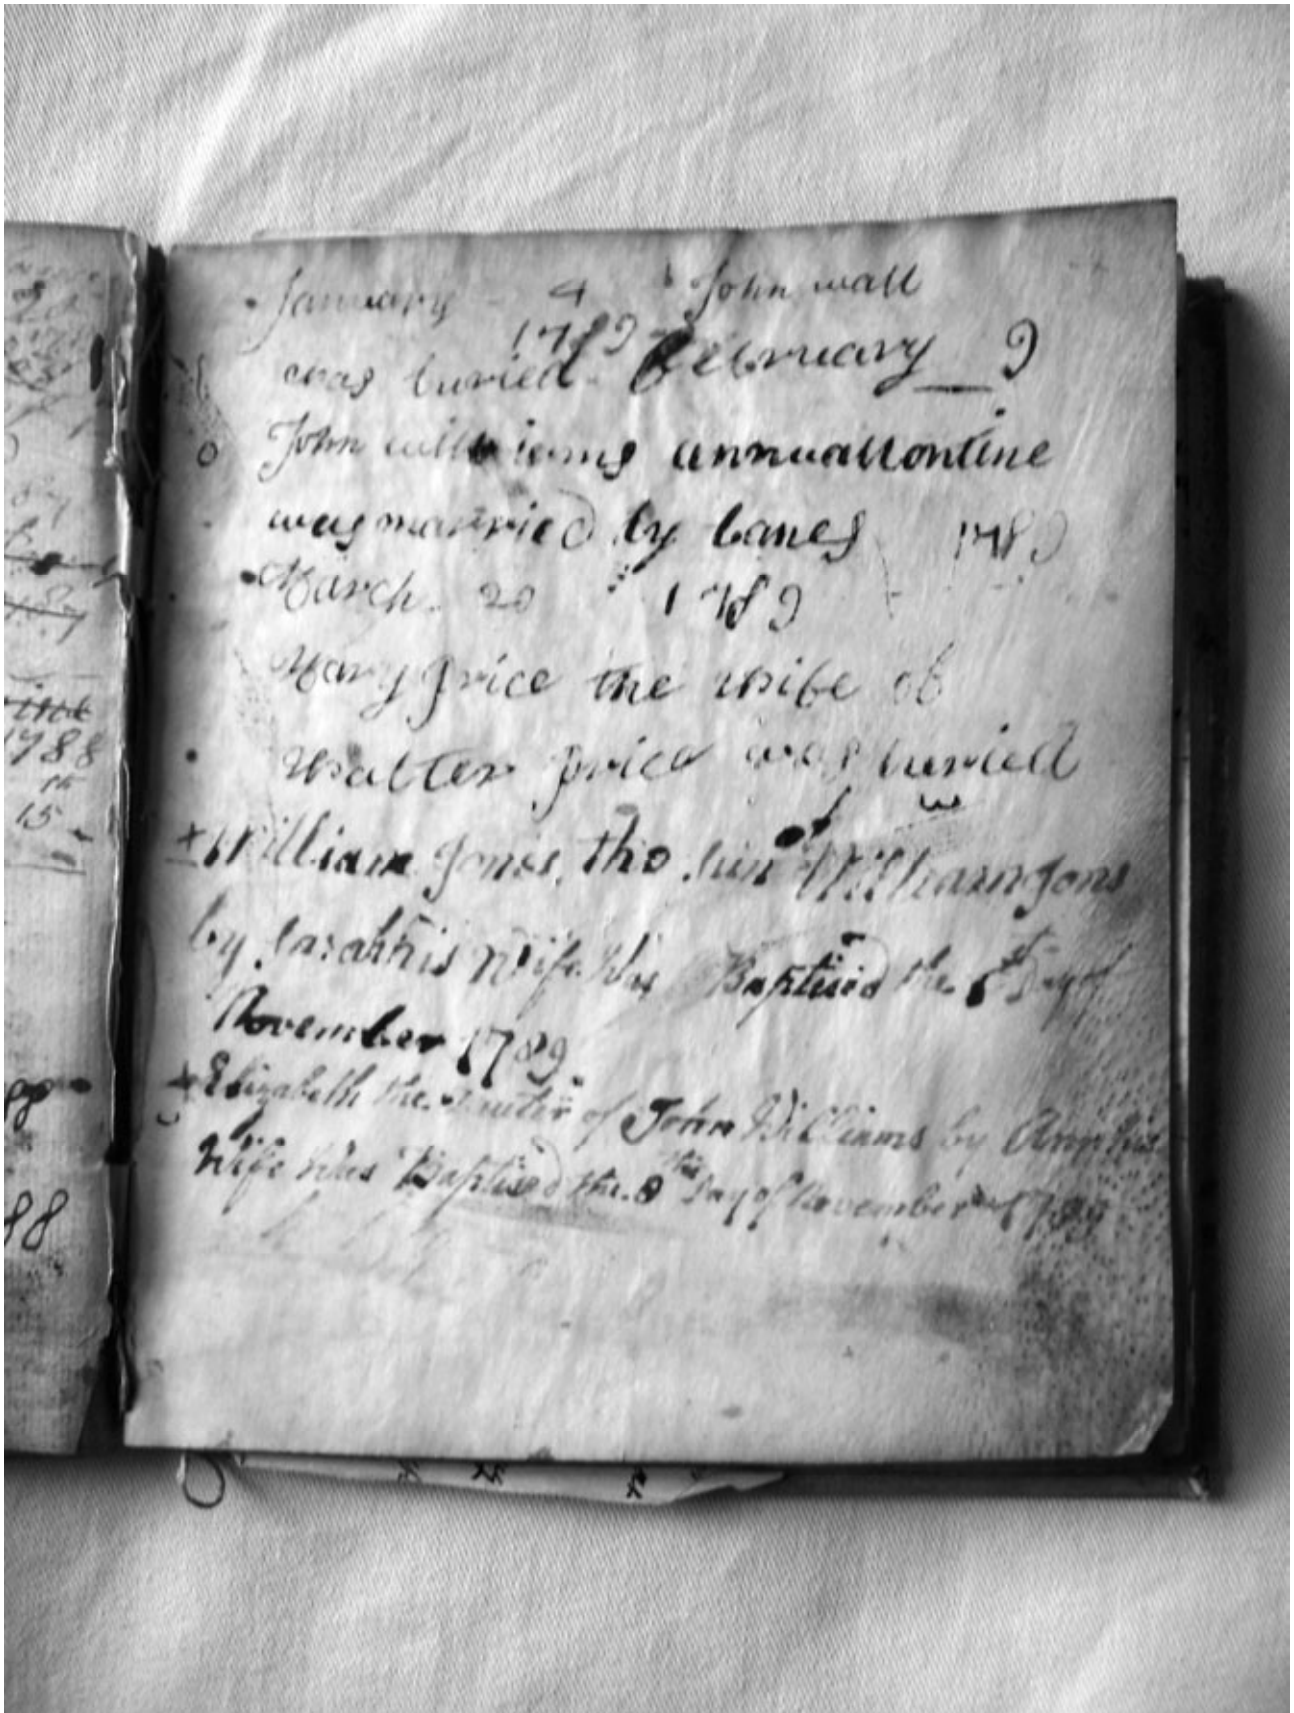 January 4 John wall
1789
was buried February 9
John williams annwallontine
was married by banes 1789
March 20 1789
Mary price the wife of
walter price was buried
William Jones the sun of William Jons
by sarah his Wife Was Baptised the 1st Day of
November 1789
Elizabeth the Dauter of John Williams by Ann his
Wife Was Baptised the 8th Day of November 1789
1788
15
15
88